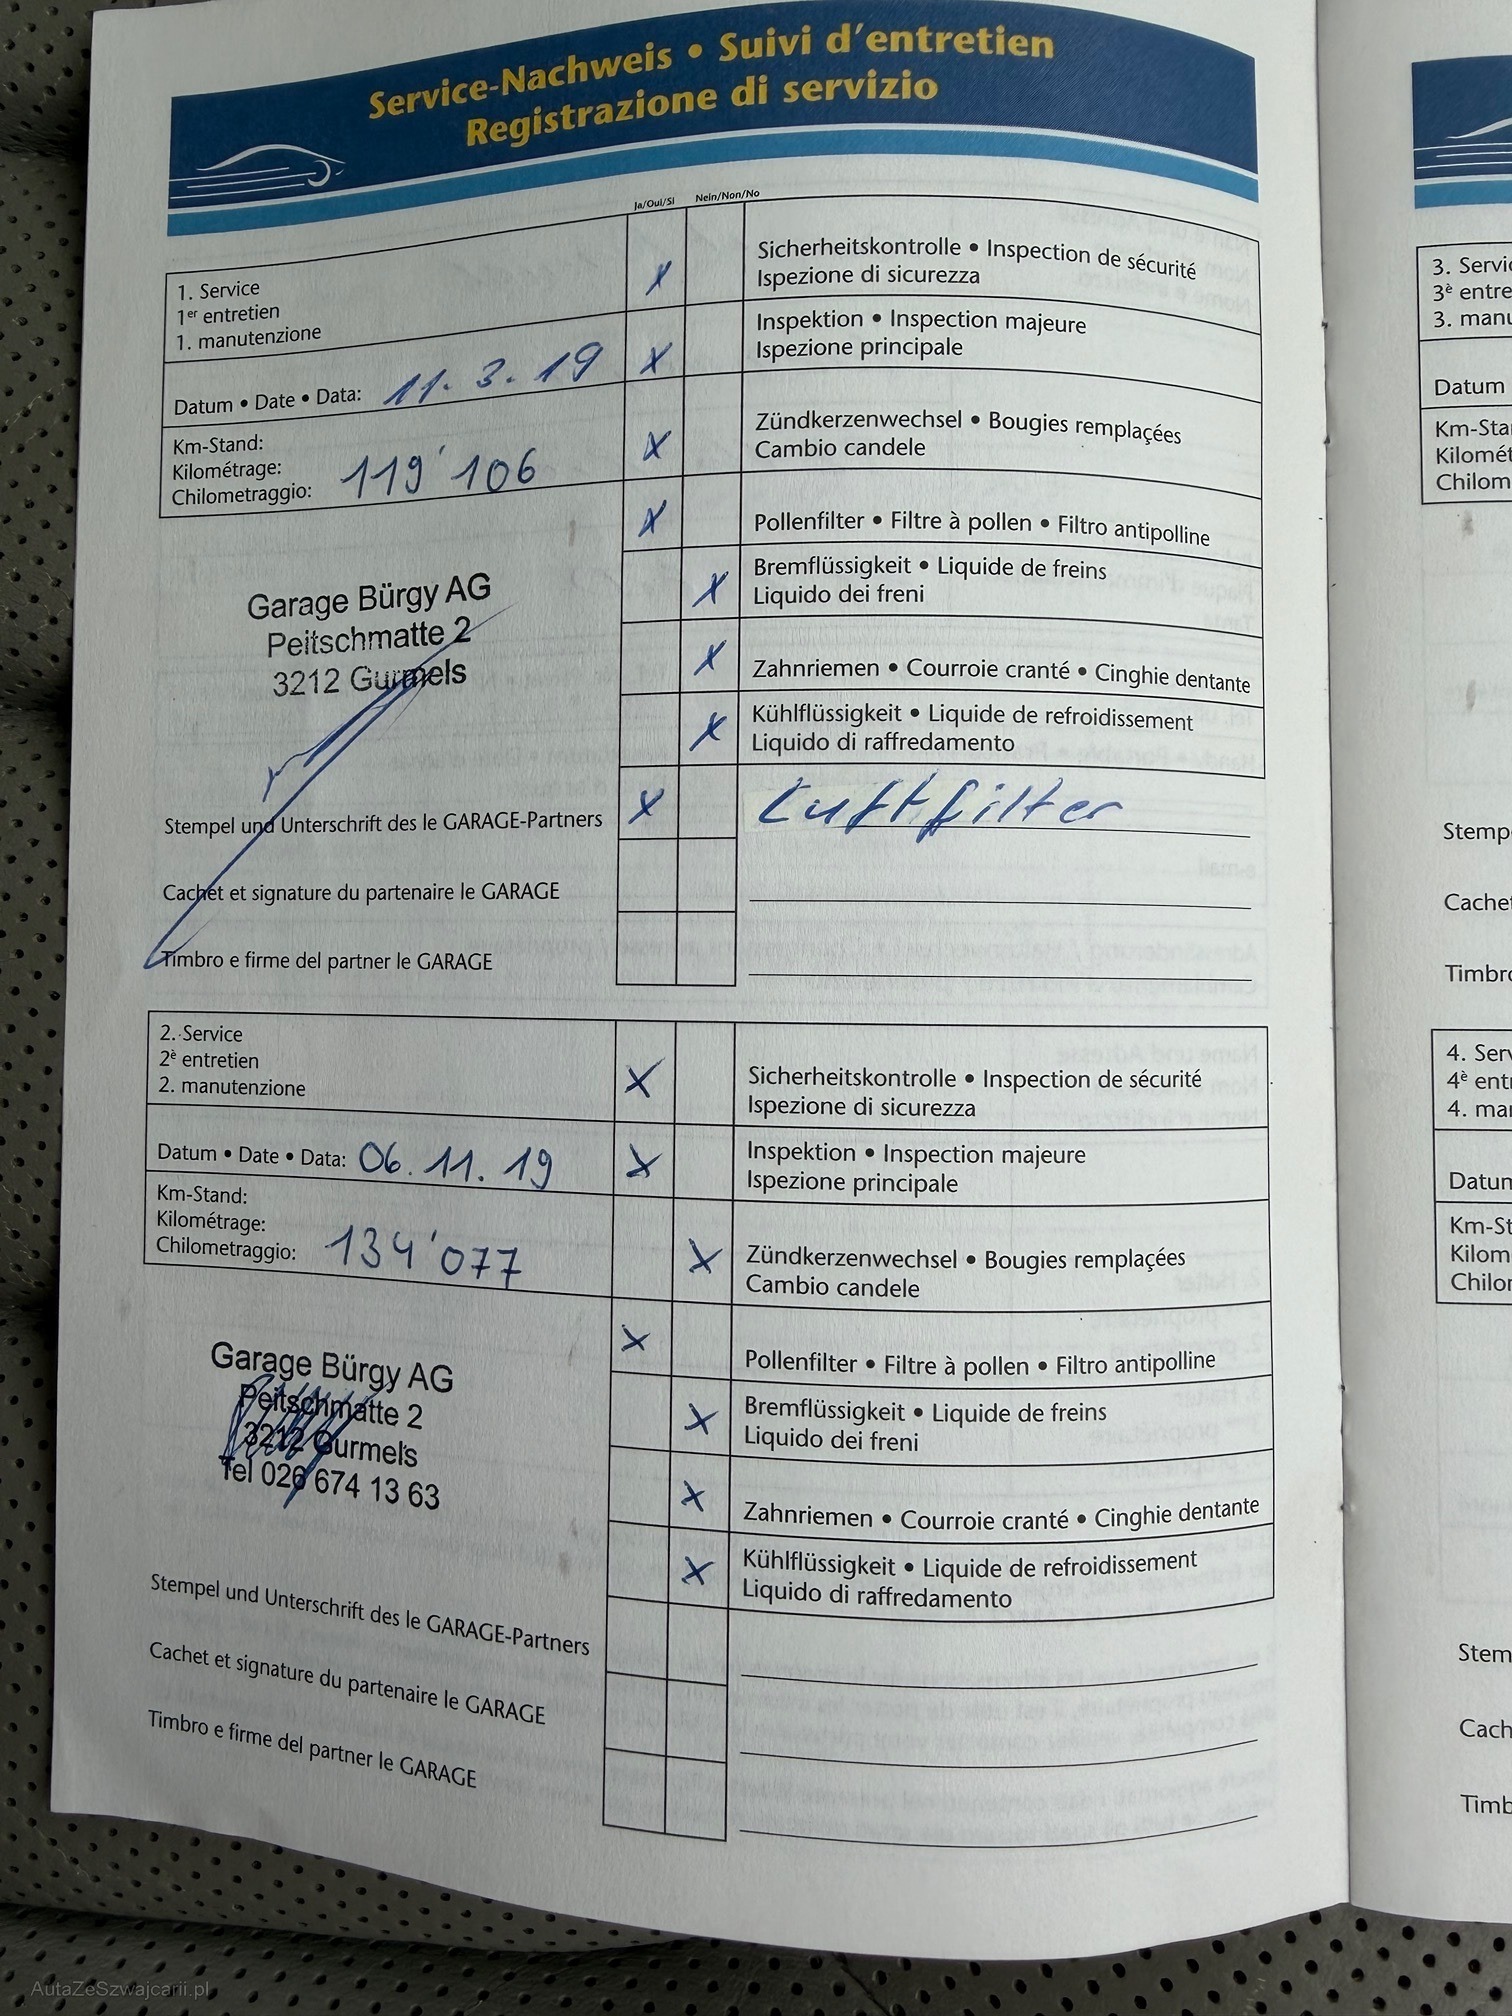 Service-Nachweis • Suivi d'entretien
Registrazione di servizio
Ja/Oui/Si Nein/Non/No
1. Service
1er entretien
1. manutenzione
Datum • Date • Data: 11. 3. 19
Km-Stand:
Kilométrage:
Chilometraggio: 119'106
X Sicherheitskontrolle • Inspection de sécurité
Ispezione di sicurezza
X Inspektion • Inspection majeure
Ispezione principale
X Zündkerzenwechsel • Bougies remplaçées
Cambio candele
X Pollenfilter • Filtre à pollen • Filtro antipolline
X Bremflüssigkeit • Liquide de freins
Liquido dei freni
X Zahnriemen • Courroie cranté • Cinghie dentante
X Kühlflüssigkeit • Liquide de refroidissement
Liquido di raffredamento
X Luftfilter
Garage Bürgy AG
Peitschmatte 2
3212 Gurmels
Stempel und Unterschrift des le GARAGE-Partners
Cachet et signature du partenaire le GARAGE
Timbro e firme del partner le GARAGE
2. Service
2è entretien
2. manutenzione
Datum • Date • Data: 06. 11. 19
Km-Stand:
Kilométrage:
Chilometraggio: 134'077
X Sicherheitskontrolle • Inspection de sécurité
Ispezione di sicurezza
X Inspektion • Inspection majeure
Ispezione principale
X Zündkerzenwechsel • Bougies remplaçées
Cambio candele
X Pollenfilter • Filtre à pollen • Filtro antipolline
X Bremflüssigkeit • Liquide de freins
Liquido dei freni
X Zahnriemen • Courroie cranté • Cinghie dentante
X Kühlflüssigkeit • Liquide de refroidissement
Liquido di raffredamento
Garage Bürgy AG
Peitschmatte 2
3212 Gurmels
Tel 026 674 13 63
Stempel und Unterschrift des le GARAGE-Partners
Cachet et signature du partenaire le GARAGE
Timbro e firme del partner le GARAGE
3. Servi
3è entre
3. manu
Datum
Km-Sta
Kilomét
Chilom
Stemp
Cachet
Timbro
4. Serv
4è entr
4. mar
Datum
Km-St
Kilom
Chilor
Stem
Cach
Timb
AutaZeSzwajcarii.pl